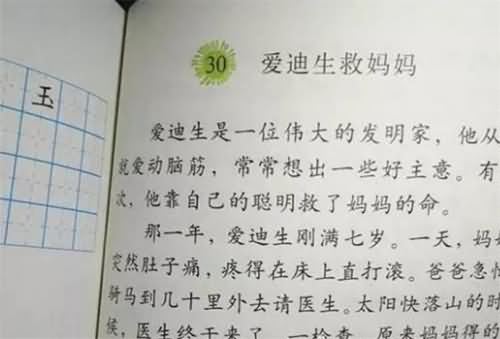 玉
30 爱迪生救妈妈
爱迪生是一位伟大的发明家，他从
就爱动脑筋，常常想出一些好主意。有
次，他靠自己的聪明救了妈妈的命。
那一年，爱迪生刚满七岁。一天，妈
突然肚子痛，疼得在床上直打滚。爸爸急忙
骑马到几十里外去请医生。太阳快落山的时
候，医生终于来了。一检查，原来妈妈得的